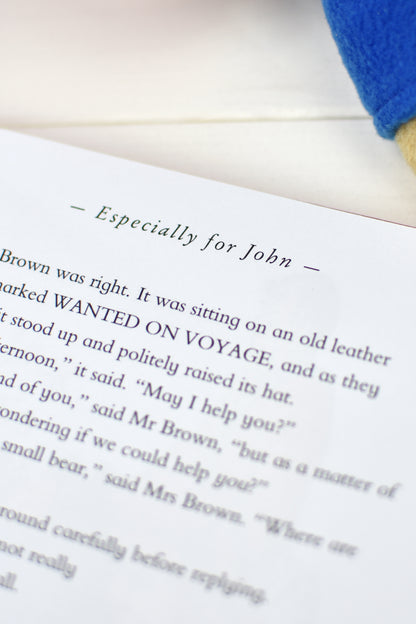 — Especially for John —
Brown was right. It was sitting on an old leather
marked WANTED ON VOYAGE, and as they
it stood up and politely raised its hat.
ternoon,” it said. “May I help you?”
nd of you,” said Mr Brown, “but as a matter of
ondering if we could help you?”
small bear,” said Mrs Brown. “Where are
round carefully before replying.
not really
ll.